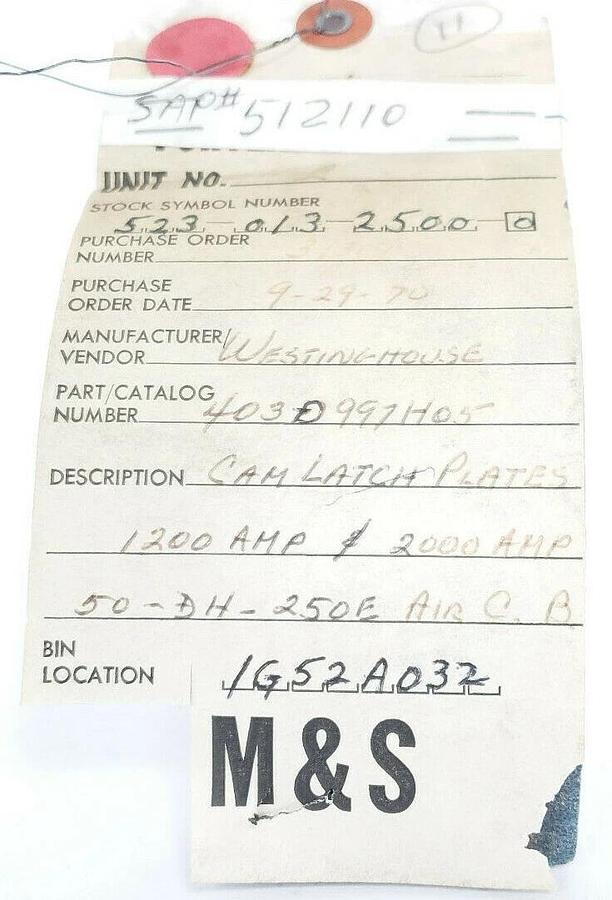 11
SAP# 512110
UNIT NO.
STOCK SYMBOL NUMBER
523-013-2500-0
PURCHASE ORDER
NUMBER
PURCHASE
ORDER DATE 9-29-70
MANUFACTURER/
VENDOR WESTINGHOUSE
PART/CATALOG
NUMBER 403D997H05
DESCRIPTION CAM LATCH PLATES
1200 AMP & 2000 AMP
50-DH-250E AIR C. B
BIN
LOCATION 1G52A032
M&S